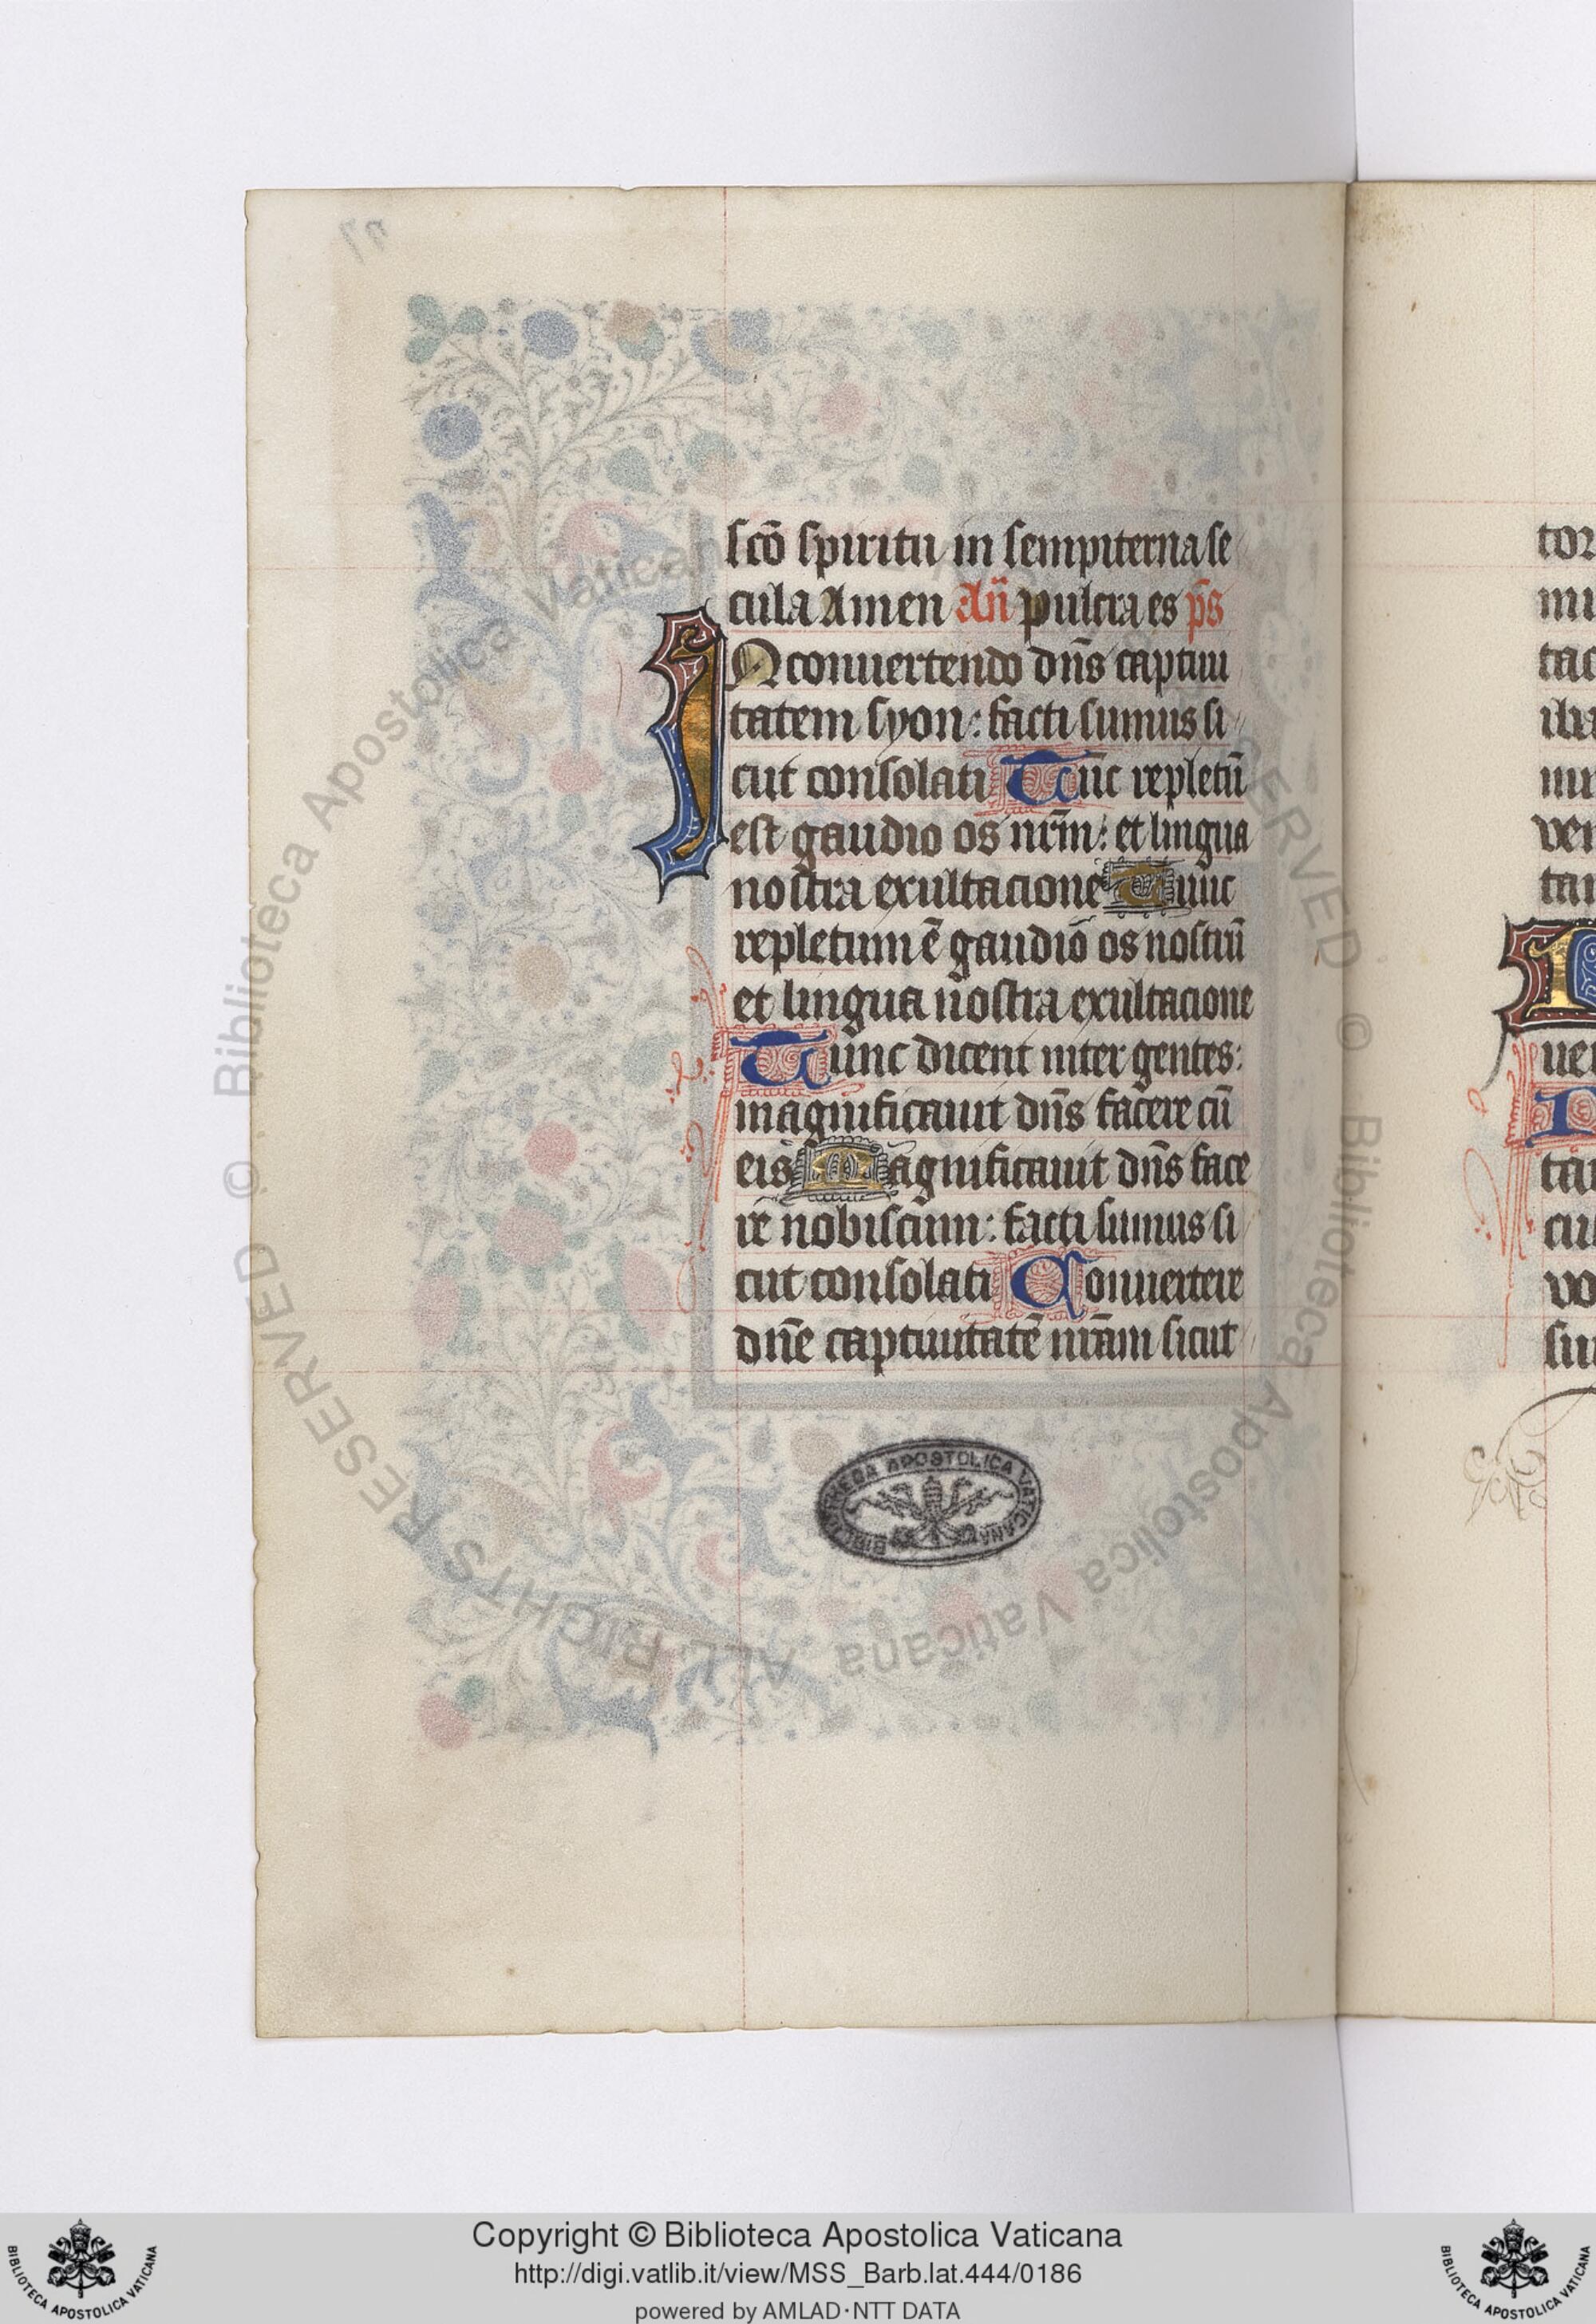 scō spiritu in sempiterna se
cula Amen Añ pulcra es ps̄
IN conuertendo dn̄s captiui
tatem syon: facti sumus si
cut consolati Tūc repletū
est gaudio os nr̄m: et lingua
nostra exultacione Tunc
repletum ē gaudio os nostrū
et lingua nostra exultacione
Tunc dicent inter gentes:
magnificauit dn̄s facere cū
eis Magnificauit dn̄s face
re nobiscum: facti sumus si
cut consolati Conuertere
dn̄e captiuitatē nr̄am sicut
BIBLIOTHECA APOSTOLICA VATICANA
© Biblioteca Apostolica Vaticana ALL RIGHTS RESERVED
Copyright © Biblioteca Apostolica Vaticana
http://digi.vatlib.it/view/MSS_Barb.lat.444/0186
powered by AMLAD·NTT DATA
BIBLIOTECA APOSTOLICA VATICANA
BIBLIOTECA APOSTOLICA VATICANA